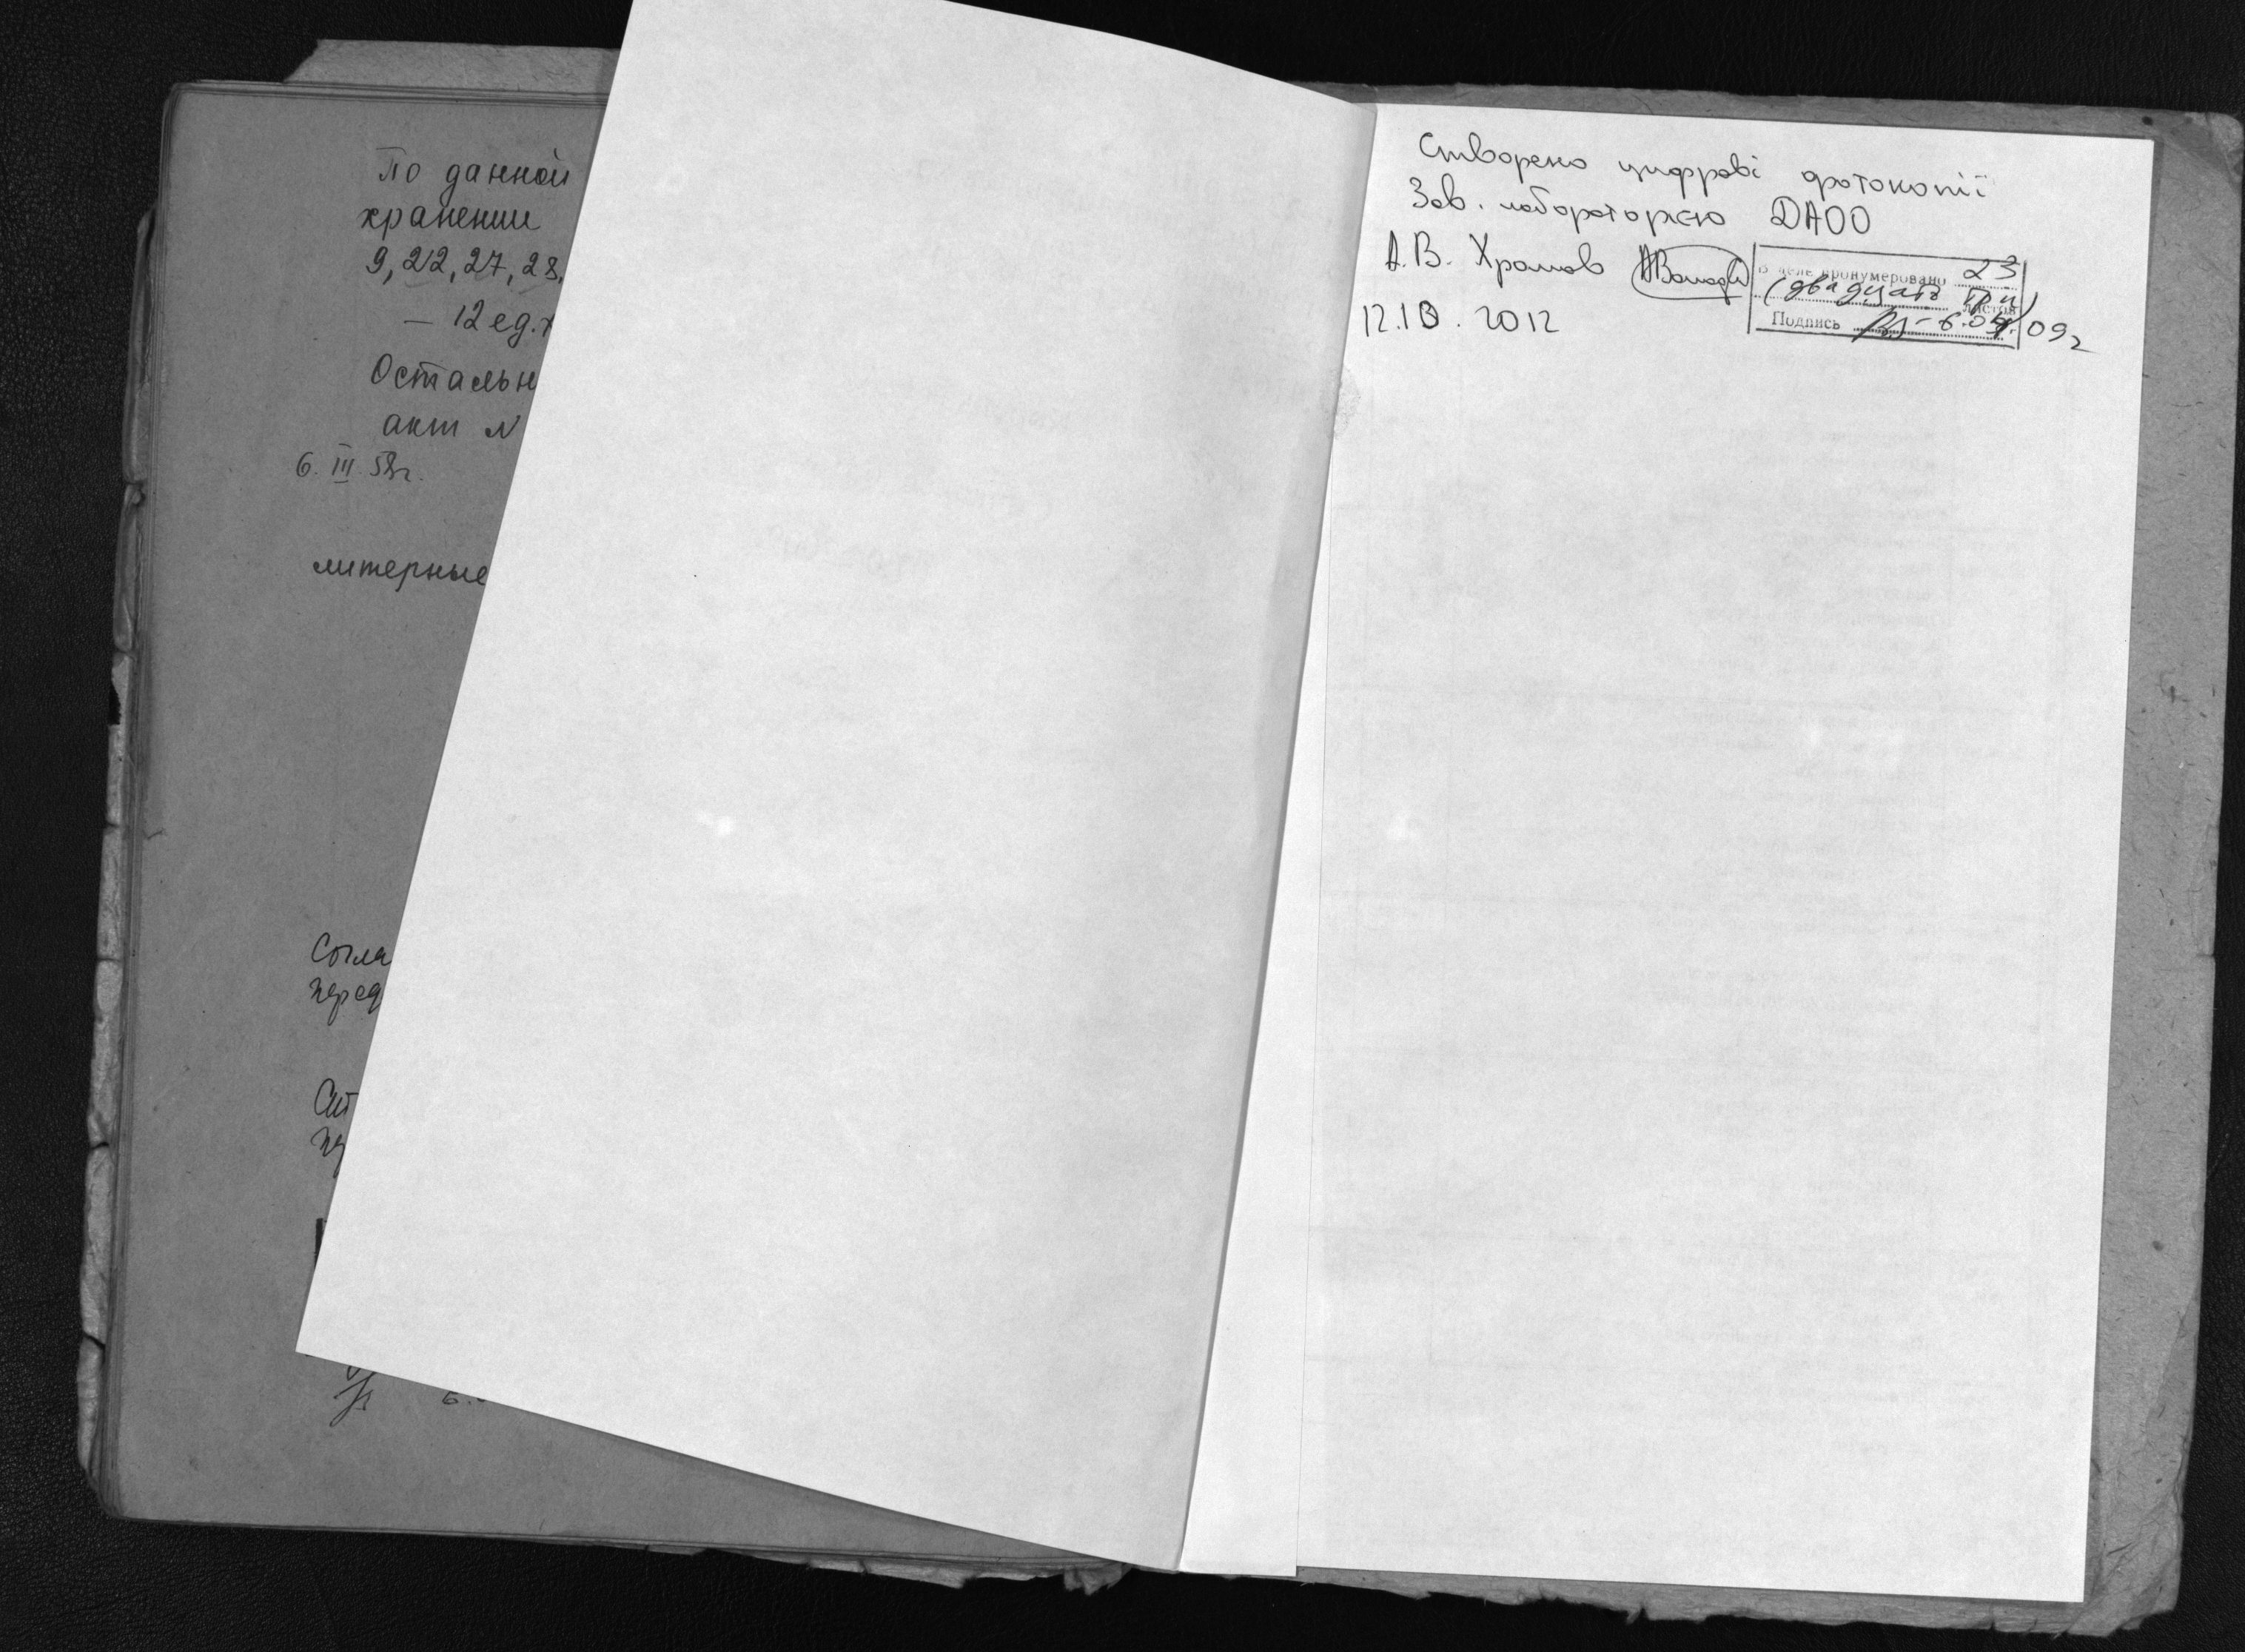 По данной
хранении
9, 22, 27, 28,
— 12 ед. х
Остальн
акт N
6. III. 58г.
литерные
Согла
перед
Створено цифрові фотокопії
Зав. лабораторією ДАОО
А.В. Хромов
12.10.2012
В деле пронумеровано 23
(двадцать три)
листов
Подпись 6.04.09г